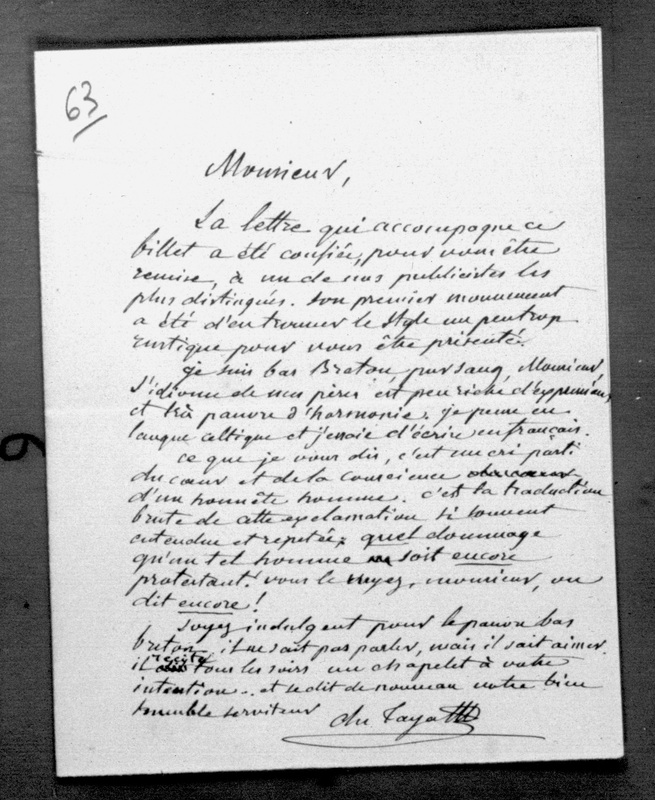 63
Monsieur,
La lettre qui accompagne ce
billet a été confiée, pour vous être
remise, à un de nos publicistes les
plus distingués. Son premier mouvement
a été d'en trouver le style un peu trop
rustique pour vous être présenté.
je suis bas Breton, pur sang, Monsieur,
l'idiome de nos pères est peu riche d'expressions
et très pauvre d'harmonie. je pense en
langue celtique et j'essaie d'écrire en français.
ce que je vous dis, c'est un cri parti
du cœur et de la conscience
d'un honnête homme. c'est la traduction
brute de cette exclamation si souvent
entendue et repetée; quel dommage
qu'un tel homme soit encore
protestant! vous le voyez, monsieur, on
dit encore!
soyez indulgent pour le pauvre bas
breton, il ne sait pas parler, mais il sait aimer.
il récite tous les soirs un chapelet à votre
intention.. et se dit de nouveau votre bien
humble serviteur